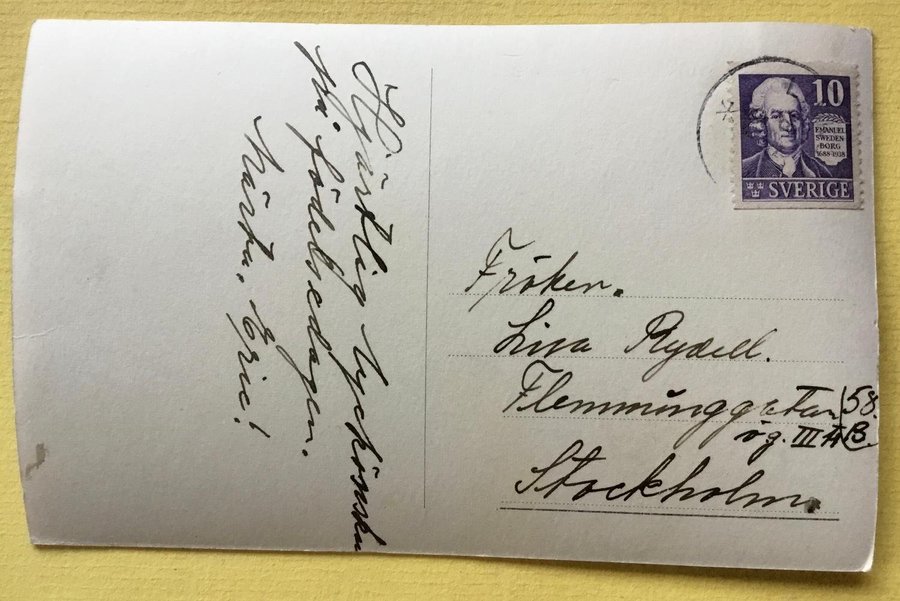 Hjärtlig lyckönskan
på födelsedagen.
Märta, Eric!
10
EMANUEL
SWEDEN-
BORG
1688-1938
SVERIGE
Fröken.
Lisa Rydell.
Flemminggatan 58.
ög. III tr B.
Stockholm.